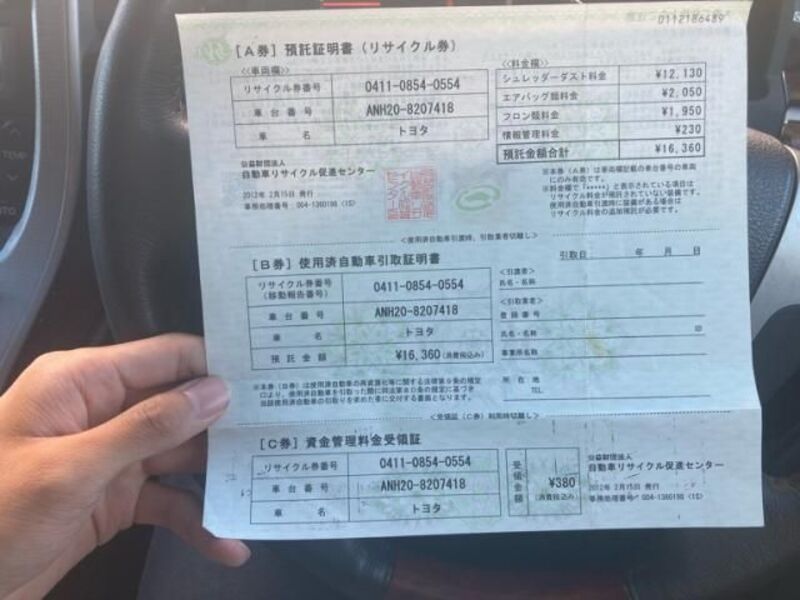 0112186489
[A券] 預託証明書 (リサイクル券)
<<車両欄>>
リサイクル券番号 0411-0854-0554
車台番号 ANH20-8207418
車名 トヨタ
<<料金欄>>
シュレッダーダスト料金 ¥12,130
エアバッグ類料金 ¥2,050
フロン類料金 ¥1,950
情報管理料金 ¥230
預託金額合計 ¥16,360
公益財団法人
自動車リサイクル促進センター
2012年 2月15日 発行
事務処理番号:004-1360198 (1S)
※本券(A券)は車両欄記載の車台番号の車両
にのみ有効です。
※料金欄で「*****」と表示されている項目は
リサイクル料金が預託されていない装備です。
使用済自動車引渡時に装備がある場合は
リサイクル料金の追加預託が必要です。
<使用済自動車引渡時、引取業者切離し>
[B券] 使用済自動車引取証明書
引取日: 年 月 日
リサイクル券番号
(移動報告番号) 0411-0854-0554
車台番号 ANH20-8207418
車名 トヨタ
預託金額 ¥16,360(消費税込み)
<引渡者>
氏名・名称
<引取業者>
登録番号
氏名・名称 ㊞
事業所名称
所在地
TEL
※本券(B券)は使用済自動車の再資源化等に関する法律第80条の規定
により、使用済自動車を引取った際に同法第80条の規定に基づき
当該使用済自動車の引取りを求めた者に交付する書面となります。
<受領証(C券)利用時切離し>
[C券] 資金管理料金受領証
リサイクル券番号 0411-0854-0554
車台番号 ANH20-8207418
車名 トヨタ
受領金額 ¥380
(消費税込み)
公益財団法人
自動車リサイクル促進センター
2012年 2月15日 発行
事務処理番号:004-1360198 (1S)
TEMP